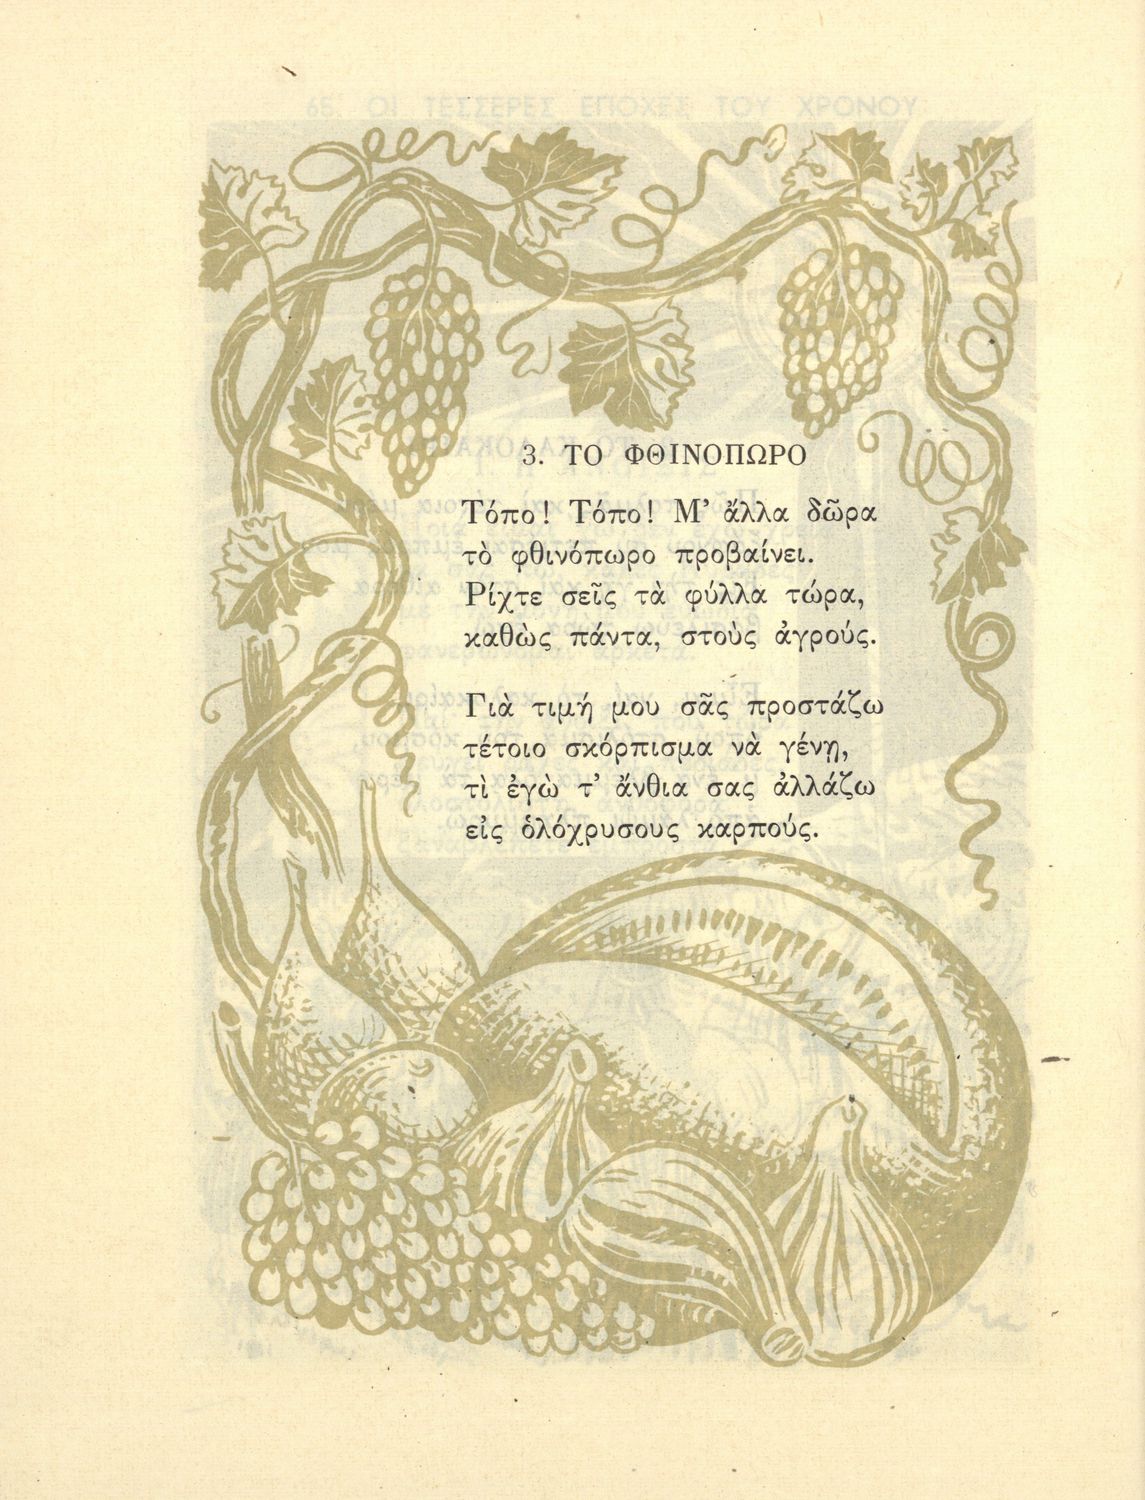 3. ΤΟ ΦΘΙΝΟΠΩΡΟ
Τόπο! Τόπο! Μ’ ἄλλα δῶρα
τὸ φθινόπωρο προβαίνει.
Ρίχτε σεῖς τὰ φύλλα τώρα,
καθὼς πάντα, στοὺς ἀγρούς.
Γιὰ τιμή μου σᾶς προστάζω
τέτοιο σκόρπισμα νὰ γένῃ,
τὶ ἐγὼ τ’ ἄνθια σας ἀλλάζω
εἰς ὁλόχρυσους καρπούς.